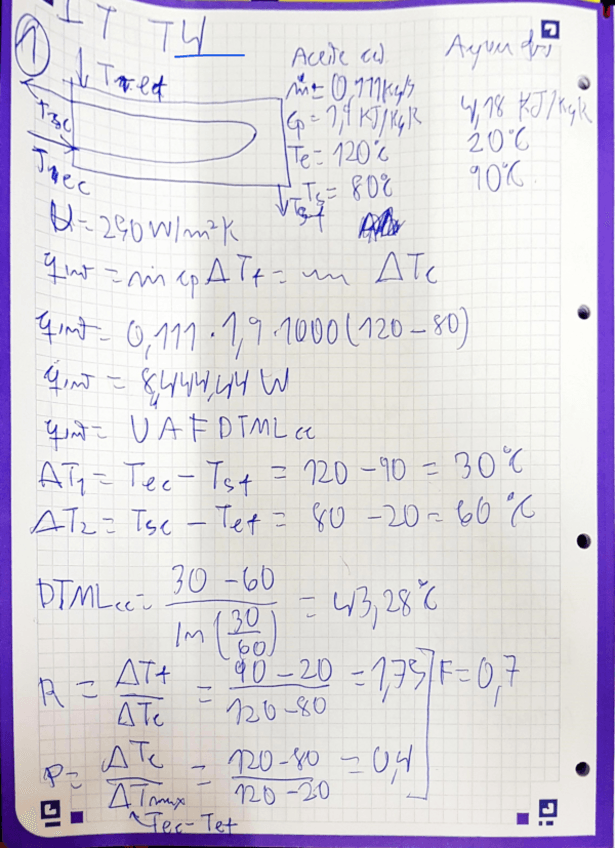 1 IT T4
Aceite (c) Agua (f)
Tret
ṁ = 0,111 Kg/s
Cp = 1,9 KJ/KgK 4,18 KJ/KgK
Tsc
Te = 120°C 20°C
Ts = 80°C 90°C
Tsf
U = 290 W/m²K
q int = ṁ cp ΔTf = ṁ ΔTc
q int = 0,111 · 1,9 · 1000 (120 - 80)
q int = 8,444,44 W
q int = U A F DTML cc
ΔT1 = Tec - Tsf = 120 - 90 = 30°C
ΔT2 = Tsc - Tef = 80 - 20 = 60°C
DTML cc = (30 - 60) / ln (30/60) = 43,28°C
R = ΔTf / ΔTc = (90 - 20) / (120 - 80) = 1,75 ] F = 0,7
P = ΔTc / ΔTmax = (120 - 80) / (120 - 20) = 0,4
Tec - Tef